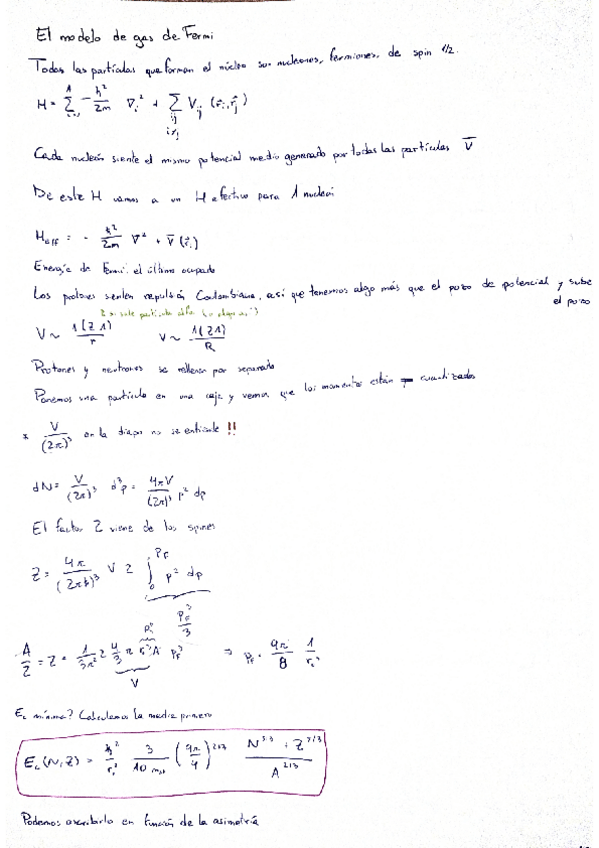 El modelo de gas de Fermi
Todas las partículas que forman el núcleo son nucleones, fermiones, de spin 1/2.
H = Σ_{i=1}^{A} - ħ²/2m ∇_i² + Σ_{ij i≠j} V_{ij} (r_i, r_j)
Cada nucleón siente el mismo potencial medio generado por todas las partículas V̄
De este H vamos a un H efectivo para 1 nucleón
H_eff = - ħ²/2m ∇² + V̄(r_i)
Energía de Fermi: el último ocupado
Los protones sienten repulsión Coulombiana, así que tenemos algo más que el pozo de potencial y sube
el pozo
V ~ 1(Z-1)/r V ~ 1(Z-1)/R
Protones y neutrones se rellenan por separado
Ponemos una partícula en una caja y vemos que los momentos están cuantizados
* V/(2π)³ en la diapo no se entiende !!
dN = V/(2π)³ d³p = 4πV/(2π)³ p² dp
El factor 2 viene de los spines
Z = 4π/(2πħ)³ V 2 ∫_0^{P_F} p² dp
P_F³/3
A/2 = Z = 1/3π² 4/3 π r_0³ A P_F³ ⇒ P_F = 9π/8 1/r_0³
V
E_c mínima? Calculamos la media primero
E_c (N,Z) = ħ²/r_0² 3/10 m (9π/4)^{2/3} N^{5/3} + Z^{5/3} / A^{2/3}
Podemos escribirlo en función de la asimetría